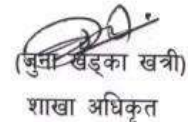 (जुना खड्का खत्री)
शाखा अधिकृत